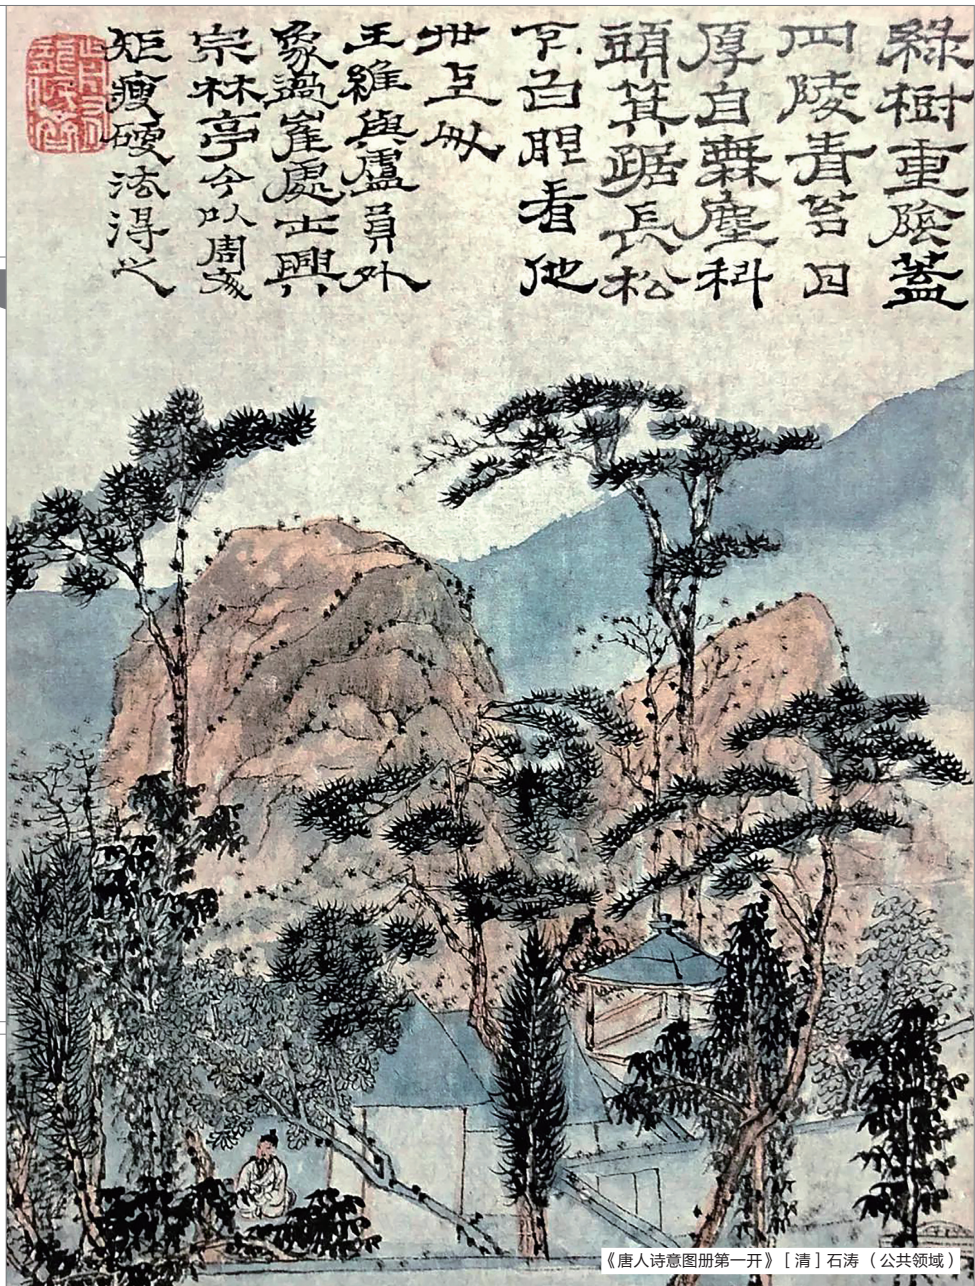 綠樹重陰蓋
四隣青苔日
厚自無塵科
頭箕踞長松
下白眼看他
世上人
王維與盧員外
象過崔處士興
宗林亭今以周文
矩瘦硬法得之
前有龍眠濟
《唐人诗意图册第一开》［清］石涛 （公共领域）